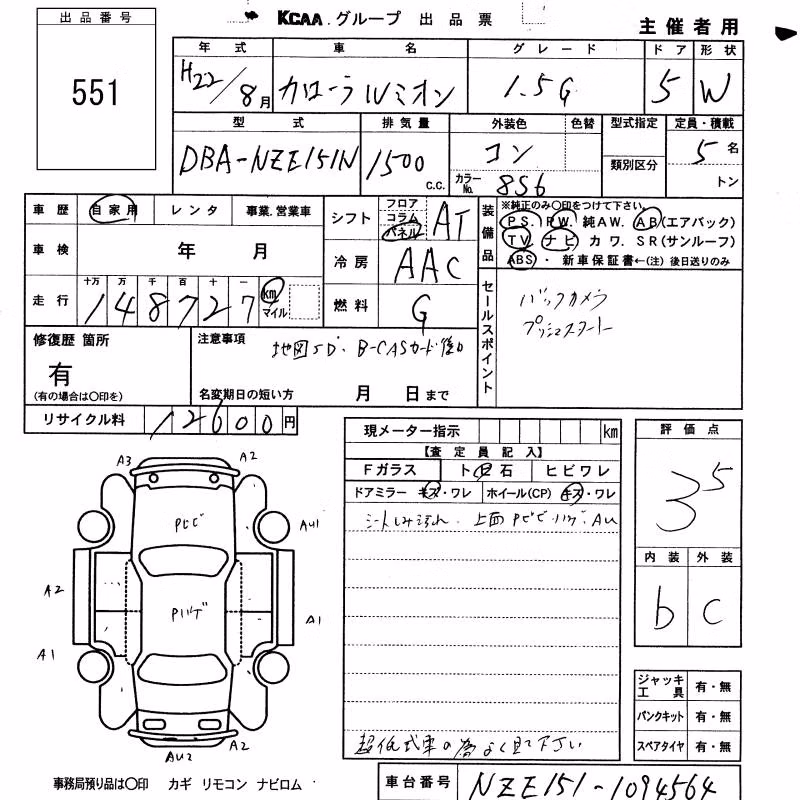 出品番号
KCAA.グループ 出品票
主催者用
551
年式 車名 グレード ドア 形状
H22/8月 カローラルミオン 1.5G 5 W
型式 排気量 外装色 色替 型式指定 定員・積載
DBA-NZE151N 1500 c.c. コン 類別区分 5名
カラーNo. 8S6 トン
車歴 自家用 レンタ 事業.営業車
シフト フロア コラム パネル AT
装備品 ※純正のみ○印をつけて下さい。
PS. PW. 純AW. AB(エアバック)
TV ナビ カワ. SR(サンルーフ)
ABS・新車保証書←(注)後日送りのみ
車検 年 月
冷房 AAC
走行 十万 万 千 百 十 一
148727 km マイル
燃料 G
セールスポイント
バックカメラ
プッシュスタート
修復歴 箇所
有
(有の場合は○印を)
注意事項
地図SD・B-CASカード後日
名変期日の短い方 月 日まで
リサイクル料 12600円
現メーター指示 km
【査定員記入】
Fガラス ト 石 ヒビワレ
ドアミラー キズ・ワレ ホイール(CP) キズ・ワレ
シートしみ汚れ. 上面PビビハゲAU
超低式車の為よく見て下さい
評価点
3 5
内装 外装
b C
A3 A2
Pビビ
AU1
A2
Pハゲ
A1
A1
AU2 A2
ジャッキ工具 有・無
パンクキット 有・無
スペアタイヤ 有・無
事務局預り品は○印 カギ リモコン ナビロム
車台番号 NZE151-1094564